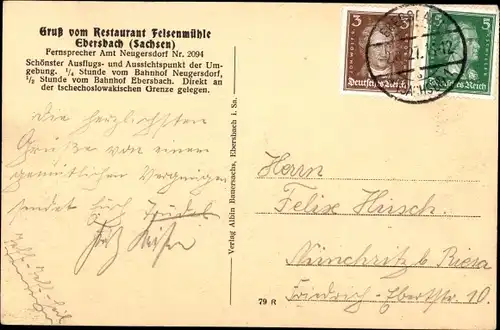 Gruß vom Restaurant Felsenmühle
Ebersbach (Sachsen)
Fernsprecher Amt Neugersdorf Nr. 2094
Schönster Ausflugs- und Aussichtspunkt der Um-
gebung. ¼ Stunde vom Bahnhof Neugersdorf,
½ Stunde vom Bahnhof Ebersbach. Direkt an
der tschechoslowakischen Grenze gelegen.
Die herzlichsten
Grüße von einem
gemütlichen Vergnügen
sendet Euch Trudel
Verlag Albin Bauersachs, Ebersbach i. Sa.
79 R
3
Deutsches Reich
5
Deutsches Reich
Herrn
Felix Husch.
Nünchritz b/ Riesa
Friedrich-Ebertstr. 10.